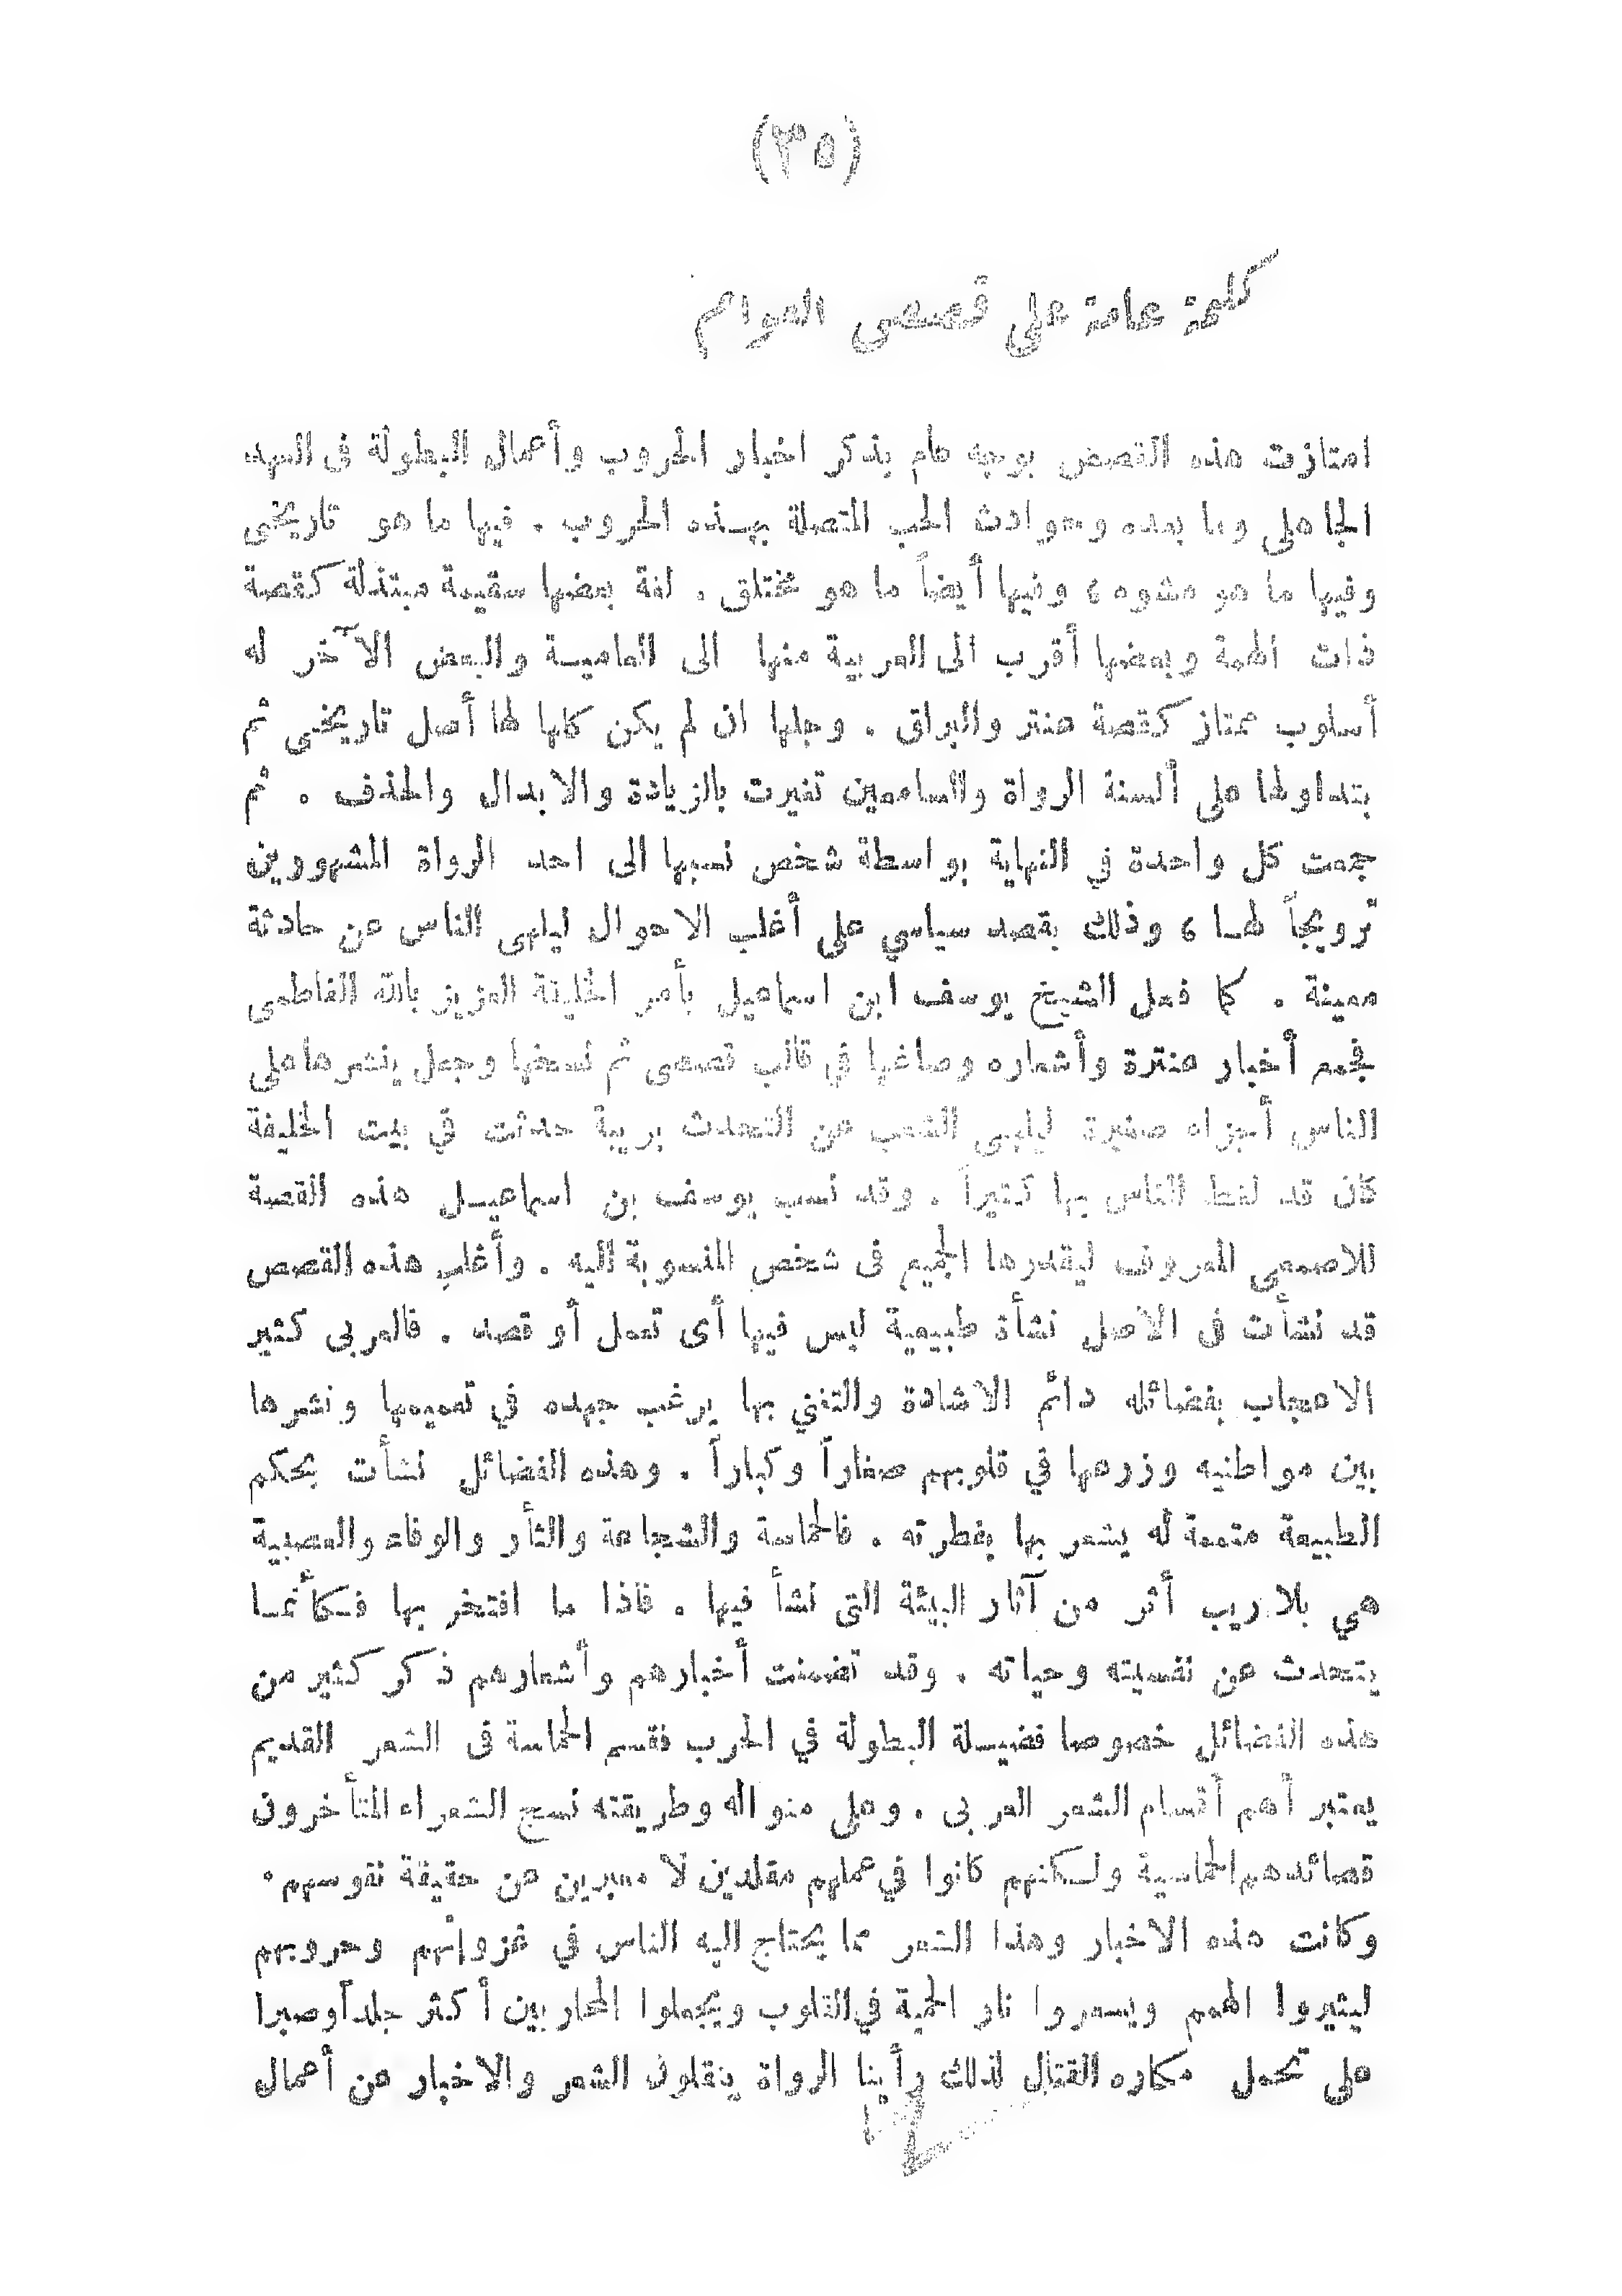 (٣٥)
كلمة عامة على قصص العوام
امتازت هذه القصص بوجه عام بذكر اخبار الحروب وأعمال البطولة فى العهد
الجاهلى وما بعده وحوادث الحب المتصلة بهذه الحروب . فيها ما هو تاريخى
وفيها ما هو مشوه ، وفيها أيضاً ما هو مختلق . لغة بعضها سقيمة مبتذلة كقصة
ذات الهمة وبعضها أقرب الى العربية منها الى العامية والبعض الآخر له
أسلوب ممتاز كقصة عنتر والبراق . وجلها ان لم يكن كلها لها أصل تاريخى ثم
بتداولها على ألسنة الرواة والسامعين تغيرت بالزيادة والابدال والحذف . ثم
جمعت كل واحدة في النهاية بواسطة شخص نسبها الى احد الرواة المشهورين
ترويجاً لها ، وذلك بقصد سياسي على أغلب الاحوال ليلهى الناس عن حادثة
معينة . كما فعل الشيخ يوسف ابن اسماعيل بأمر الخليفة العزيز بالله الفاطمى
فجمع أخبار عنترة وأشعاره وصاغها في قالب قصصى ثم نسخها وجعل ينشرها على
الناس أجزاء صغيرة ليلهى الشعب عن التحدث بريبة حدثت في بيت الخليفة
كان قد لغط الناس بها كثيراً . وقد نسب يوسف بن اسماعيل هذه القصة
للاصمعي المعروف ليقدرها الجميع فى شخص المنسوبة اليه . وأغلب هذه القصص
قد نشأت فى الاصل نشأة طبيعية ليس فيها أى تعمل أو قصد . فالعربى كثير
الاعجاب بفضائله دائم الاشادة والتغني بها يرغب جهده في تعميمها ونشرها
بين مواطنيه وزرعها في قلوبهم صغاراً وكباراً . وهذه الفضائل نشأت بحكم
الطبيعة متممة له يشعر بها بفطرته . فالحماسة والشجاعة والثأر والوفاء والعصبية
هي بلا ريب أثر من آثار البيئة التى نشأ فيها . فاذا ما افتخر بها فكأنما
يتحدث عن نفسيته وحياته . وقد تضمنت أخبارهم وأشعارهم ذكر كثير من
هذه الفضائل خصوصا فضيلة البطولة في الحرب فقسم الحماسة فى الشعر القديم
يعتبر أهم أقسام الشعر العربى . وعلى منواله وطريقته نسج الشعراء المتأخرون
قصائدهم الحماسية ولكنهم كانوا في عملهم مقلدين لا معبرين عن حقيقة نفوسهم .
وكانت هذه الاخبار وهذا الشعر مما يحتاج اليه الناس في غزواتهم وحروبهم
ليثيروا الهمم ويسعروا نار الحمية في القلوب ويجعلوا المحاربين أكثر جلداً وصبرا
على تحمل مكاره القتال لذلك رأينا الرواة ينقلون الشعر والاخبار عن أعمال